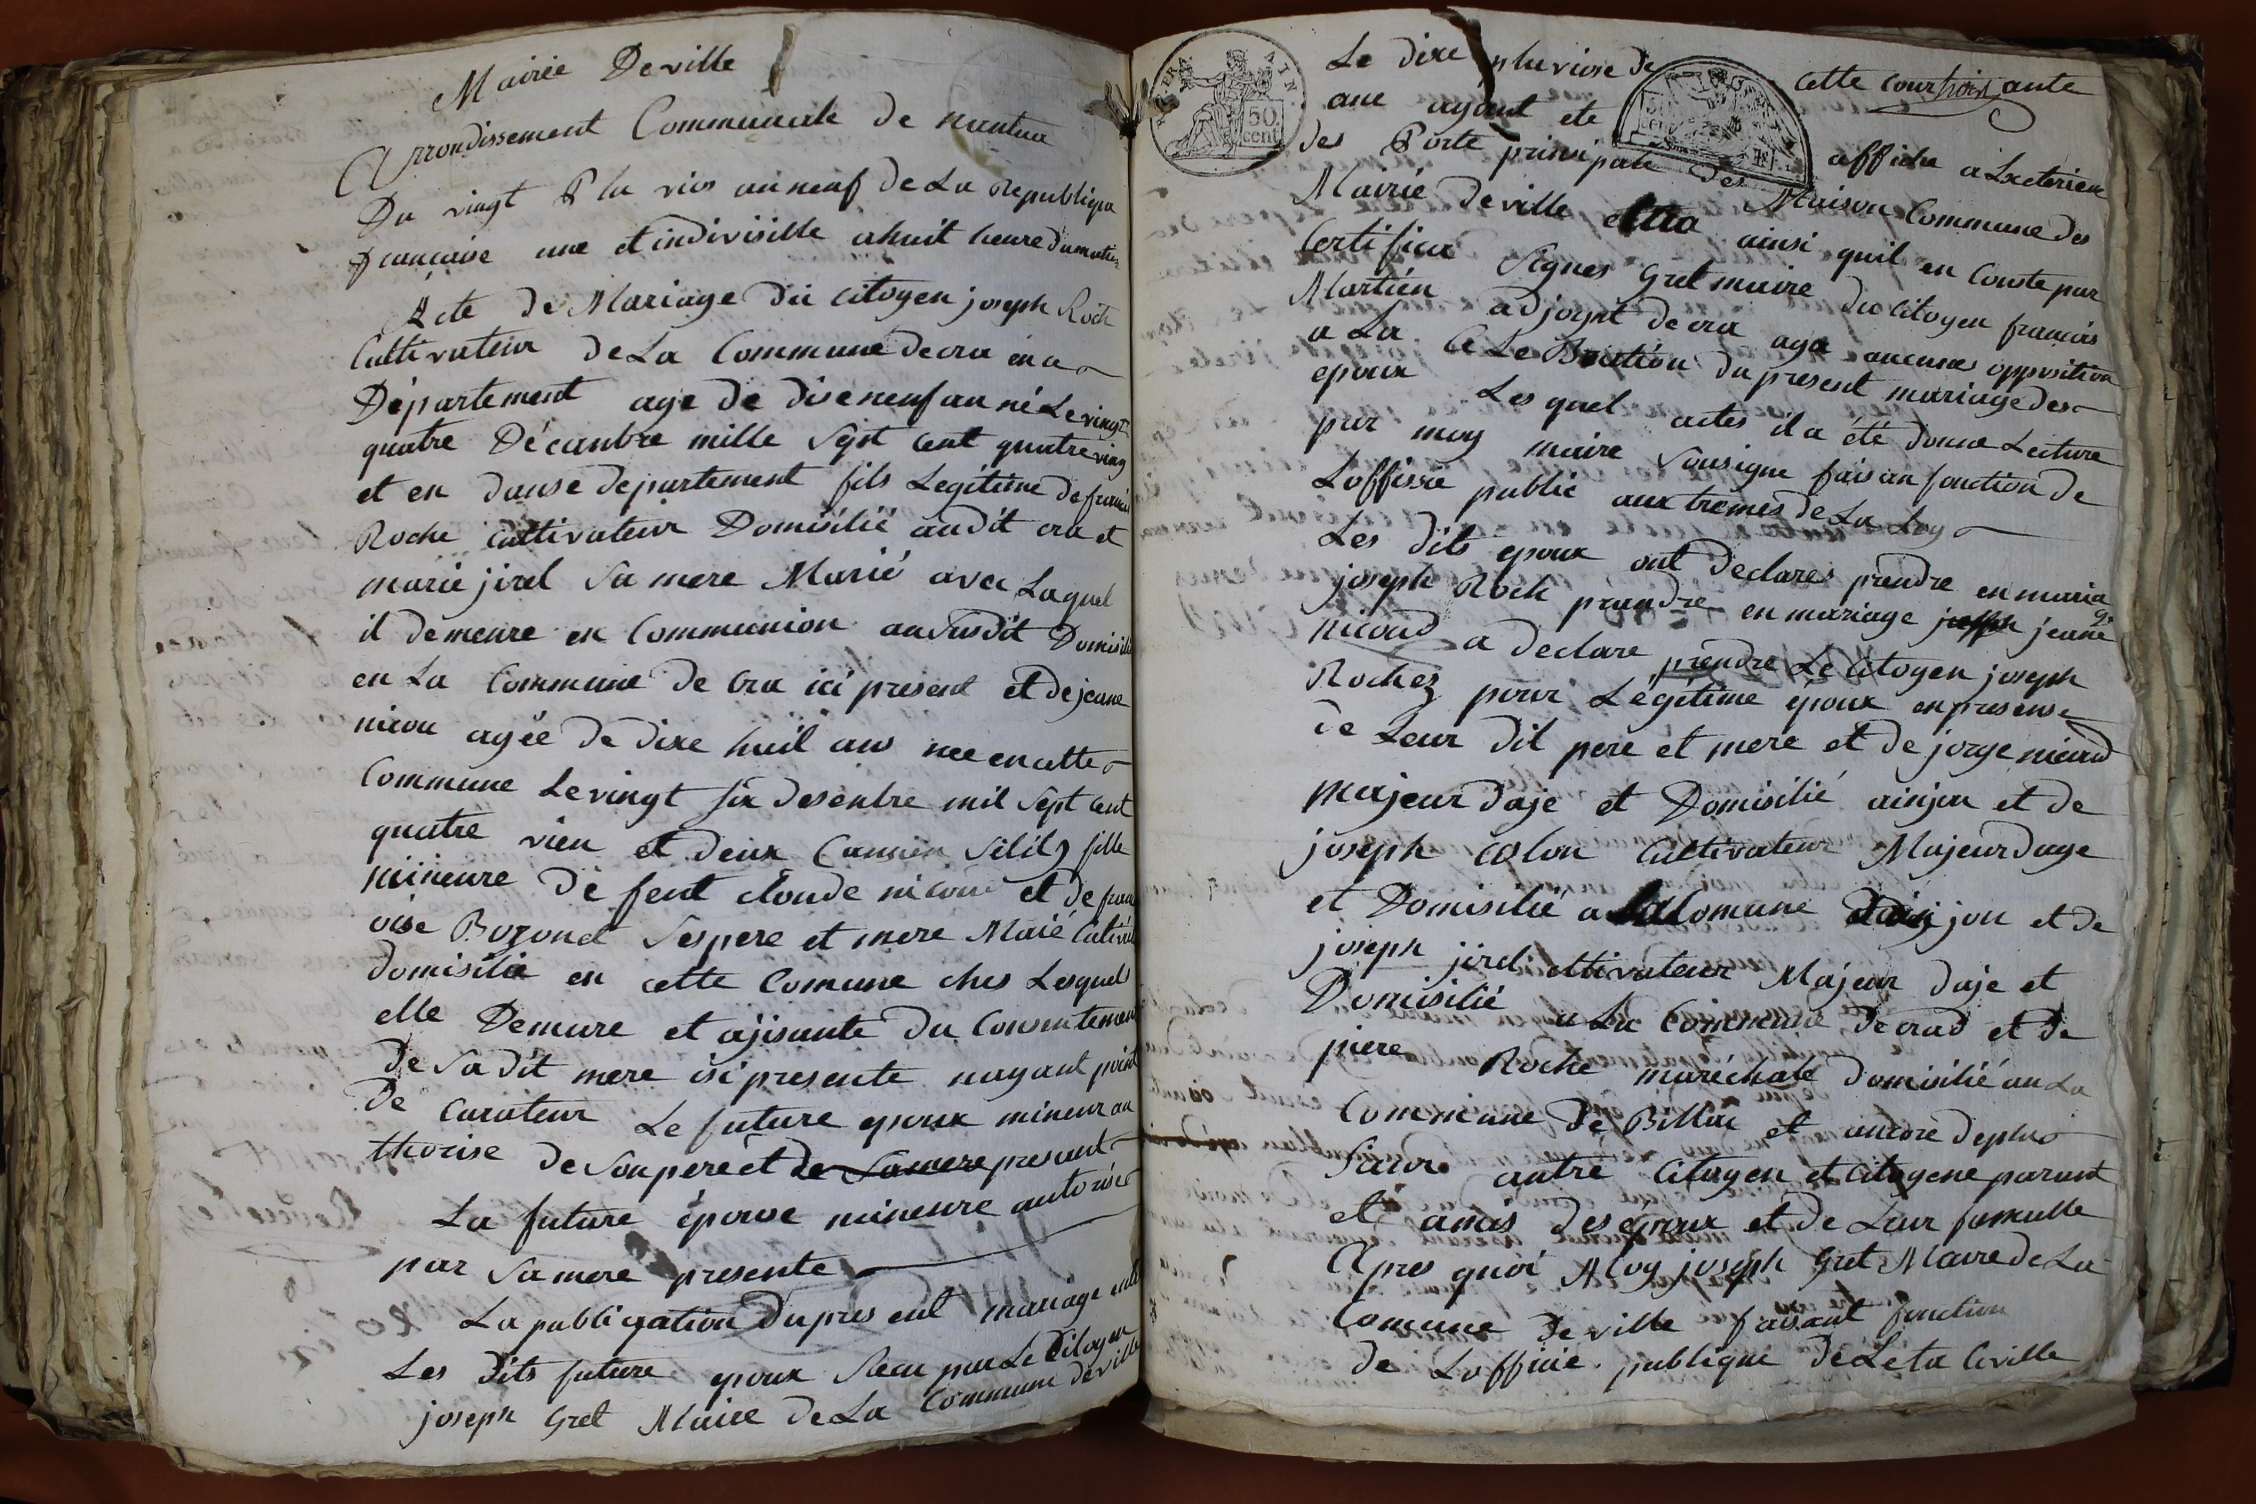 Mairie Deville
Arrondissement Communale de nantua
Du vingt Pluvios an neuf de La republique
francaise une et indivisille a huit heure du matin
Acte de Mariage du Citoyen joseph Roch
Cultivateur de La Commune de cra en ce
Departement age de dise neuf an né Le vingt
quatre Décanbre mille Sept cent quatre ving
et en danse departement fils Legitime de francois
Roche Cultivateur Domisilié audit cra et
marie jirel Sa mere Marié avec Laquel
il demeure en Communion au Susdit Domisile
en La Commune de Cra ici present et de jeane
nicou agée de dixe huil ans nee en cette
Commune Le vingt six desenbre mil Sept cent
quatre vien et deux fille
mineure de feut cloude nicoud et de franc
oise Bozonet Ses pere et mere Maié Cultivat
domisilie en cette Comune ches Lesquels
elle Demure et ajisante du Consintement
de Sa dit mere isi presente nayant point
De curateur Le future epoux mineur au
thorise de Son pere et de Sa mere present
La future épouse mineure autorisé
par Sa mere presente
La publiqation du present mariage entre
Les dits future epoux Seau par Le Citoyen
joseph Gret Maire de La Commune deville
AIN
50 cent
Le dixe pluviose de cette courante
ane ayant ete affiche a Lxcterieur
des Porte prinsipale des Maison Commune des
Mairie deville et cra ainsi quil en Conste par
Certifica Signes Gret maire du Citoyen francois
Martien adjoynt de cra aya aucunes opposition
a La Ce Le Bration du present mariage des
epoux Les quel actes il a été donne Lecture
par moy maire Sousigne faisan fonction de
Loffissie public aux tremes de La Loy
Les dits epoux ont declares prendre en mariage
joseph Roch prandre en mariage jeane
nicoud a declare prendre Le Citoyen joseph
Rochez pour Légitime époux en presense
de Leur dit pere et mere et de jorge nicoud
majeur daje et Domisilié ainjou et de
joseph colon Cultivateur Majeur dage
et Domisilié a Comune dainjou et de
joseph jirel Cultivateur Majeur daje et
Domisilié a La Commune de crad et de
piere Roche maréchale domisilié au La
Commune de Billia et encore deplus
Sieurs autre Citoyen et Citoyene parant
et amis des époux et de Leur famille
Apres quoi Moy joseph Gret Maire de La
Comune de ville faisant fonction
de Loffisie publique de Leta Civille